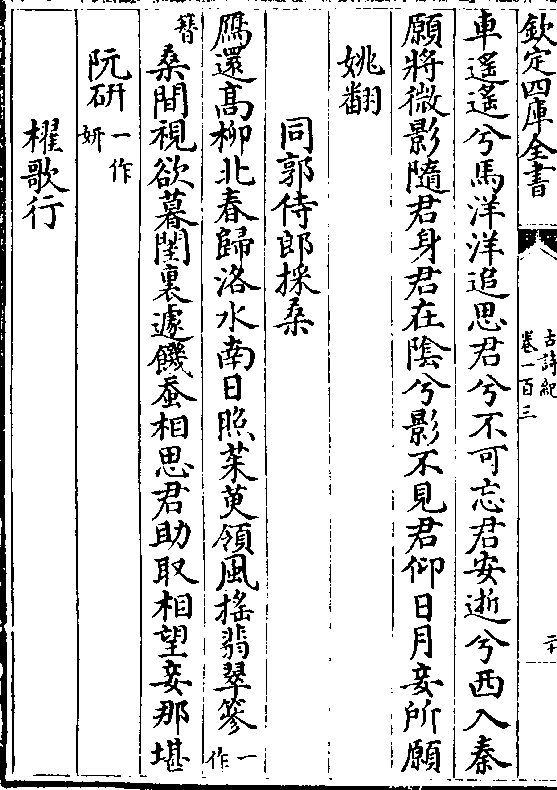 欽定四庫全書
古詩紀
卷一百三
二十
車遥遥兮馬洋洋追思君兮不可忘君安逝兮西入秦
願將微影隨君身君在陰兮影不見君仰日月妾所願
姚翻
同郭侍郎採桑
鴈還髙柳北春歸洛水南日照茱萸領風揺翡翠篸一作
簪桑間視欲暮閨裏遽饑蚕相思君助取相望妾那堪
阮研一作妍
櫂歌行